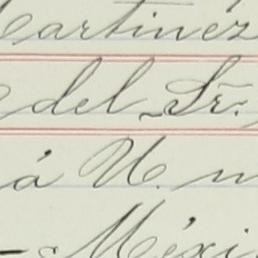 Martinez
del Sr.
á U. m
Méxi